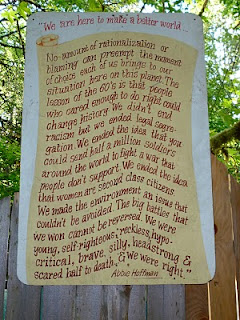 "We are here to make a better world.
No amount of rationalization or
blaming can preempt the moment
of choice each of us brings to our
situation here on this planet. The
lesson of the 60's is that people
who cared enough to do right could
change history. We didn't end
racism but we ended legal segre-
gation. We ended the idea that you
could send half a million soldiers
around the world to fight a war that
people don't support. We ended the idea
that women are second class citizens.
We made the environment an issue that
couldn't be avoided. The big battles that
we won cannot be reversed. We were
young, self righteous, reckless, hypo-
critical, brave, silly, headstrong &
scared half to death. & we were right."
Abbie Hoffman